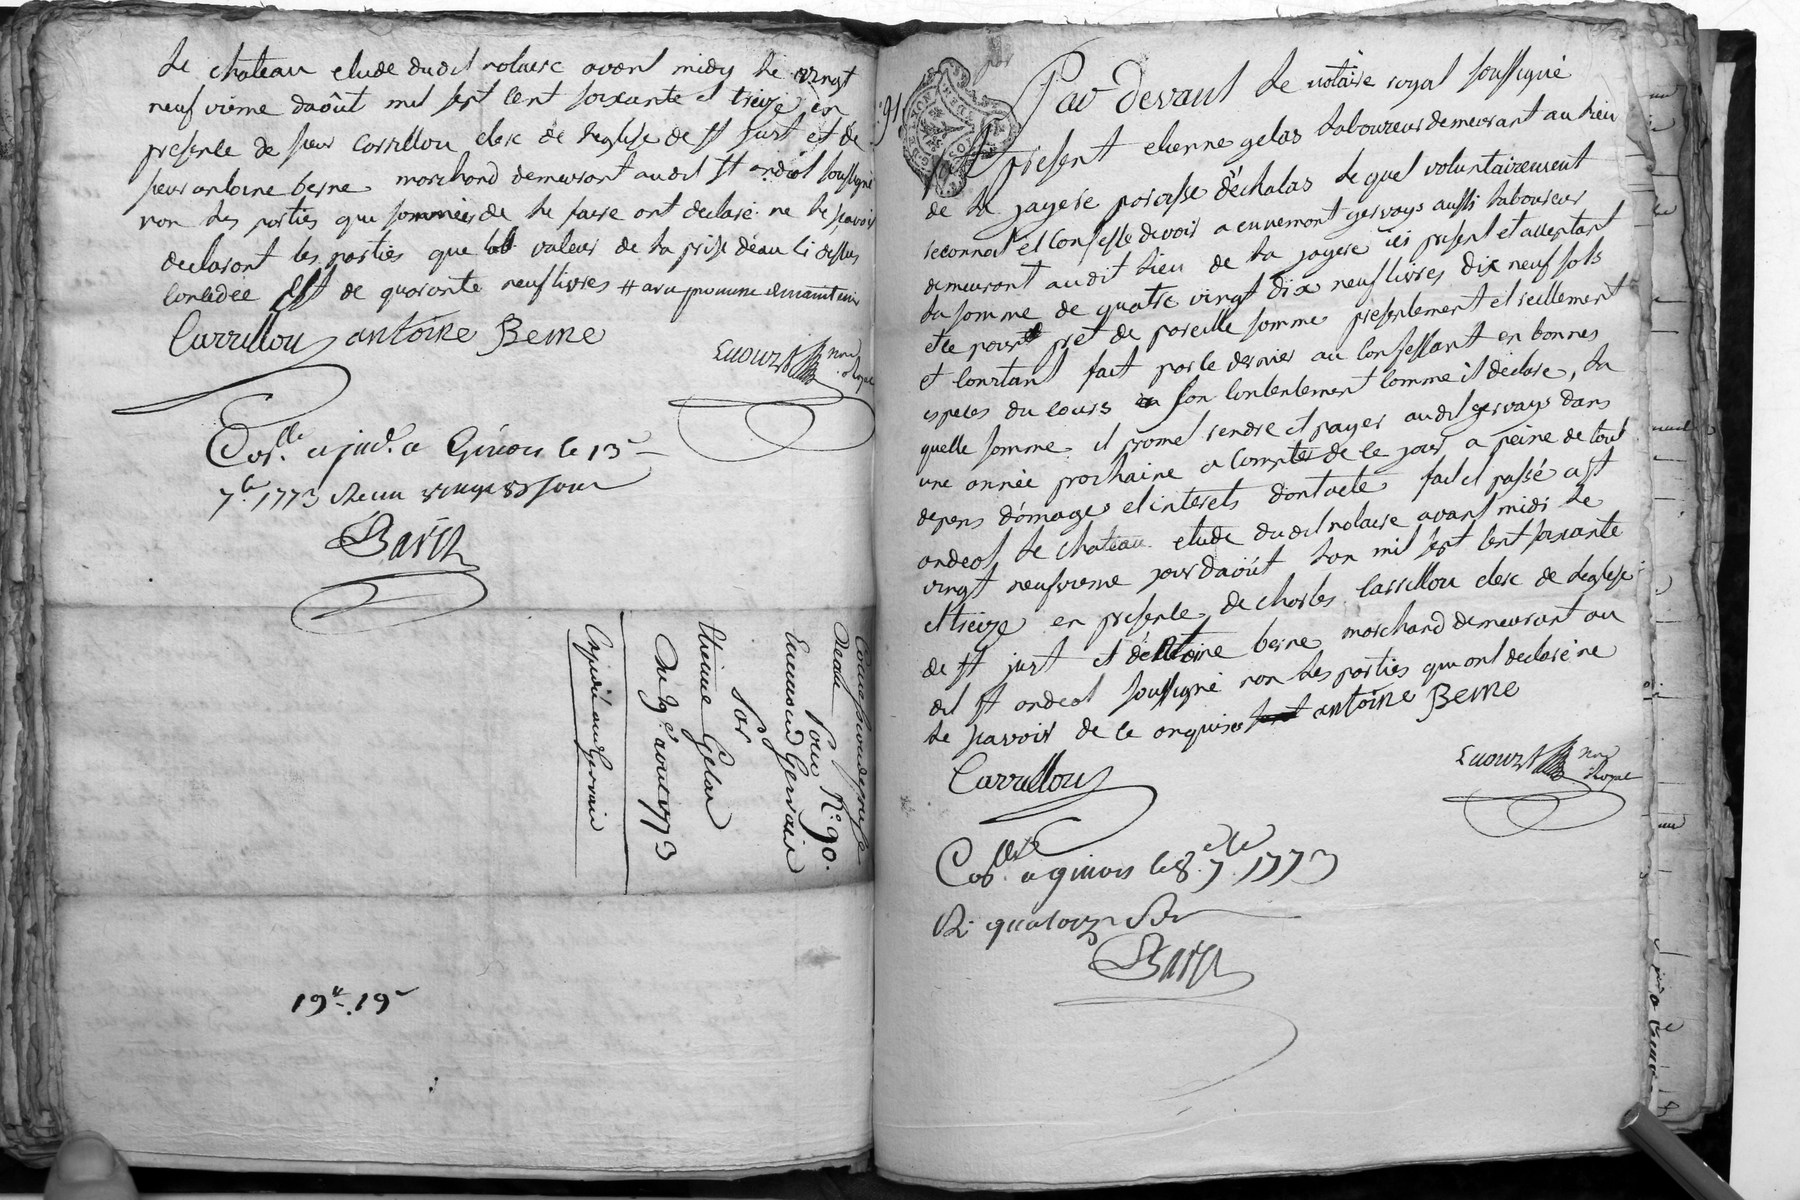 le chateau etude dudit notaire avant midy le vingt
neufvieme daoût mil sept cent soixante et treize en
presence de sieur Carrillou clerc de leglise de st just et de
sieur antoine berne marchand demeurant audit st andéol soussigné
non les parties qui sommées de le faire ont declaré ne le scavoir
declarant les parties que la valeur de la prise déau ci dessus
concedée est de quarante neuf livres
Carrillou antoine Berne
not
Royal
Con.lle a le 13
7.bre 1773
Barth
Concession de prise
deau
Pour N.o 90.
Ennemond Gervais
Par
Etienne Gelas
Du 29.e aout 1773
Expedié au Gervais
19.tt 19
91
Par devant le notaire royal soussigné
fut present etienne gelas laboureur demeurant au lieu
de la jayere paroisse d'échalas lequel voluntairement
reconnoit et confesse devoir a ennemont gervays aussi laboureur
demeurant audit lieu de la jayere ici present et acceptant
la somme de quatre vingt dix neuf livres dix neuf sols
et ce pour pret de pareille somme presentement et reellement
et comptant fait par le dernier au confessant en bonnes
especes du cours a son contentement comme il declare, la
quelle somme il promet rendre et payer audit gervays dans
une année prochaine a compter de ce jour a peine de tout
depens domages et interets dont acte fait et passé a st
andeol le chateau etude dudit notaire avant midi le
vingt neufvieme jour daoût lan mil sept cent soixante
et treize en presence de charles Carrillou clerc de leglise
de st just et d'antoine berne marchand demeurant au
dit st andeol soussigné non les parties qui ont declaré ne
le scavoir de ce enquises antoine Berne
Carrillou
not
Royal
Con.lle a givors le 8. 7.bre 1773
R. quatorze sols
Barth